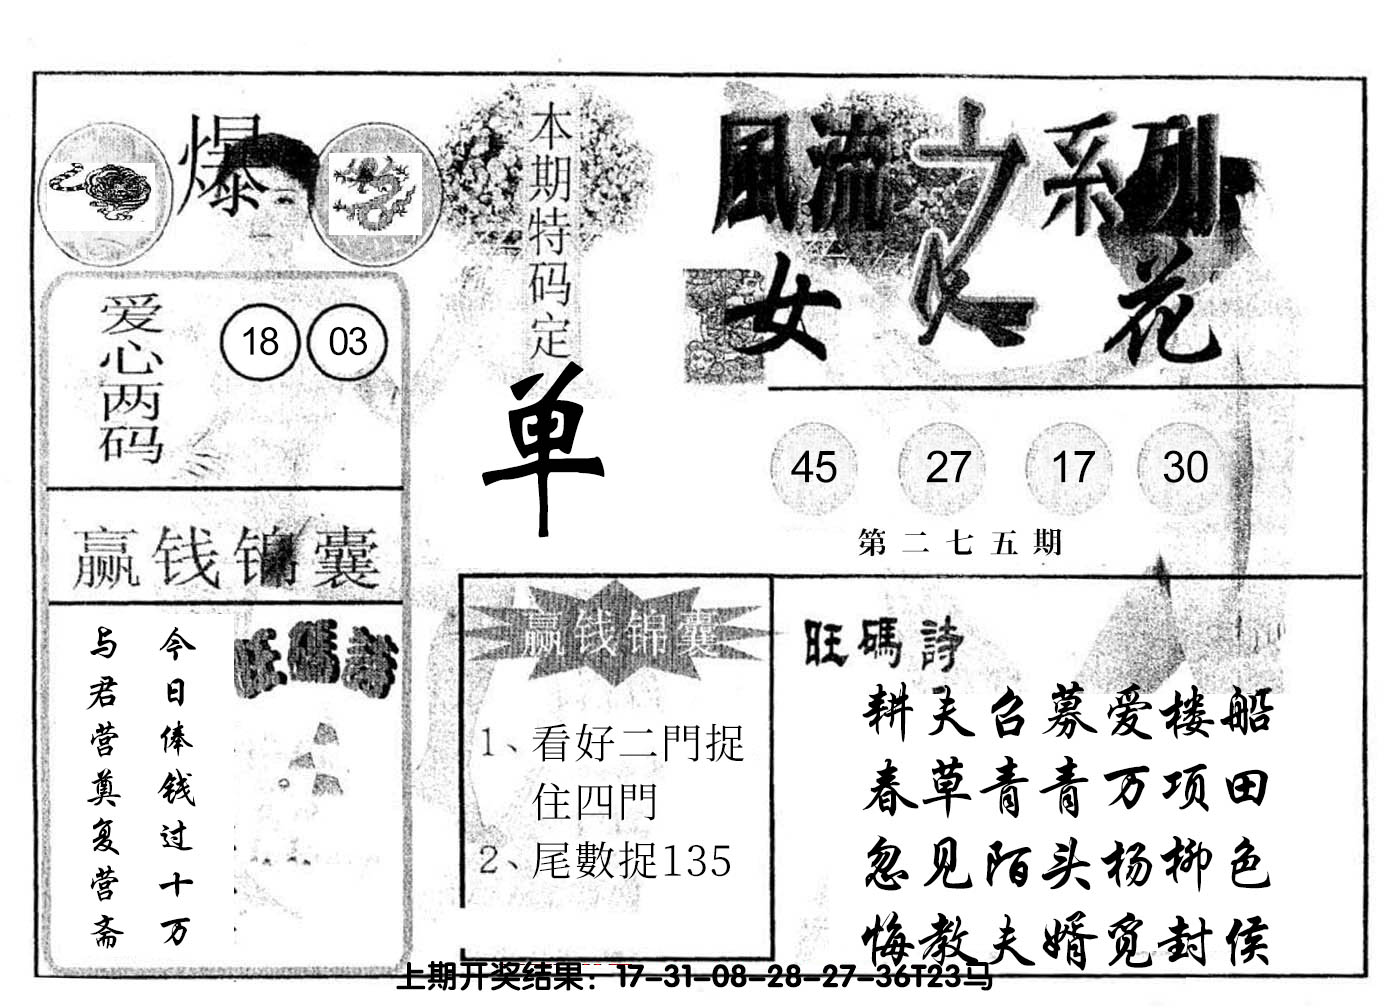 爆
本期特码定
单
風流之系列
女人花
爱心两码
18 03
45 27 17 30
第二七五期
赢钱锦囊
今日俸钱过十万
与君营奠复营斋
旺碼詩
赢钱锦囊
1、看好二門捉
住四門
2、尾數捉135
旺碼詩
耕夫召募爱楼船
春草青青万项田
忽见陌头杨柳色
悔教夫婿觅封侯
上期开奖结果：17-31-08-28-27-36T23马